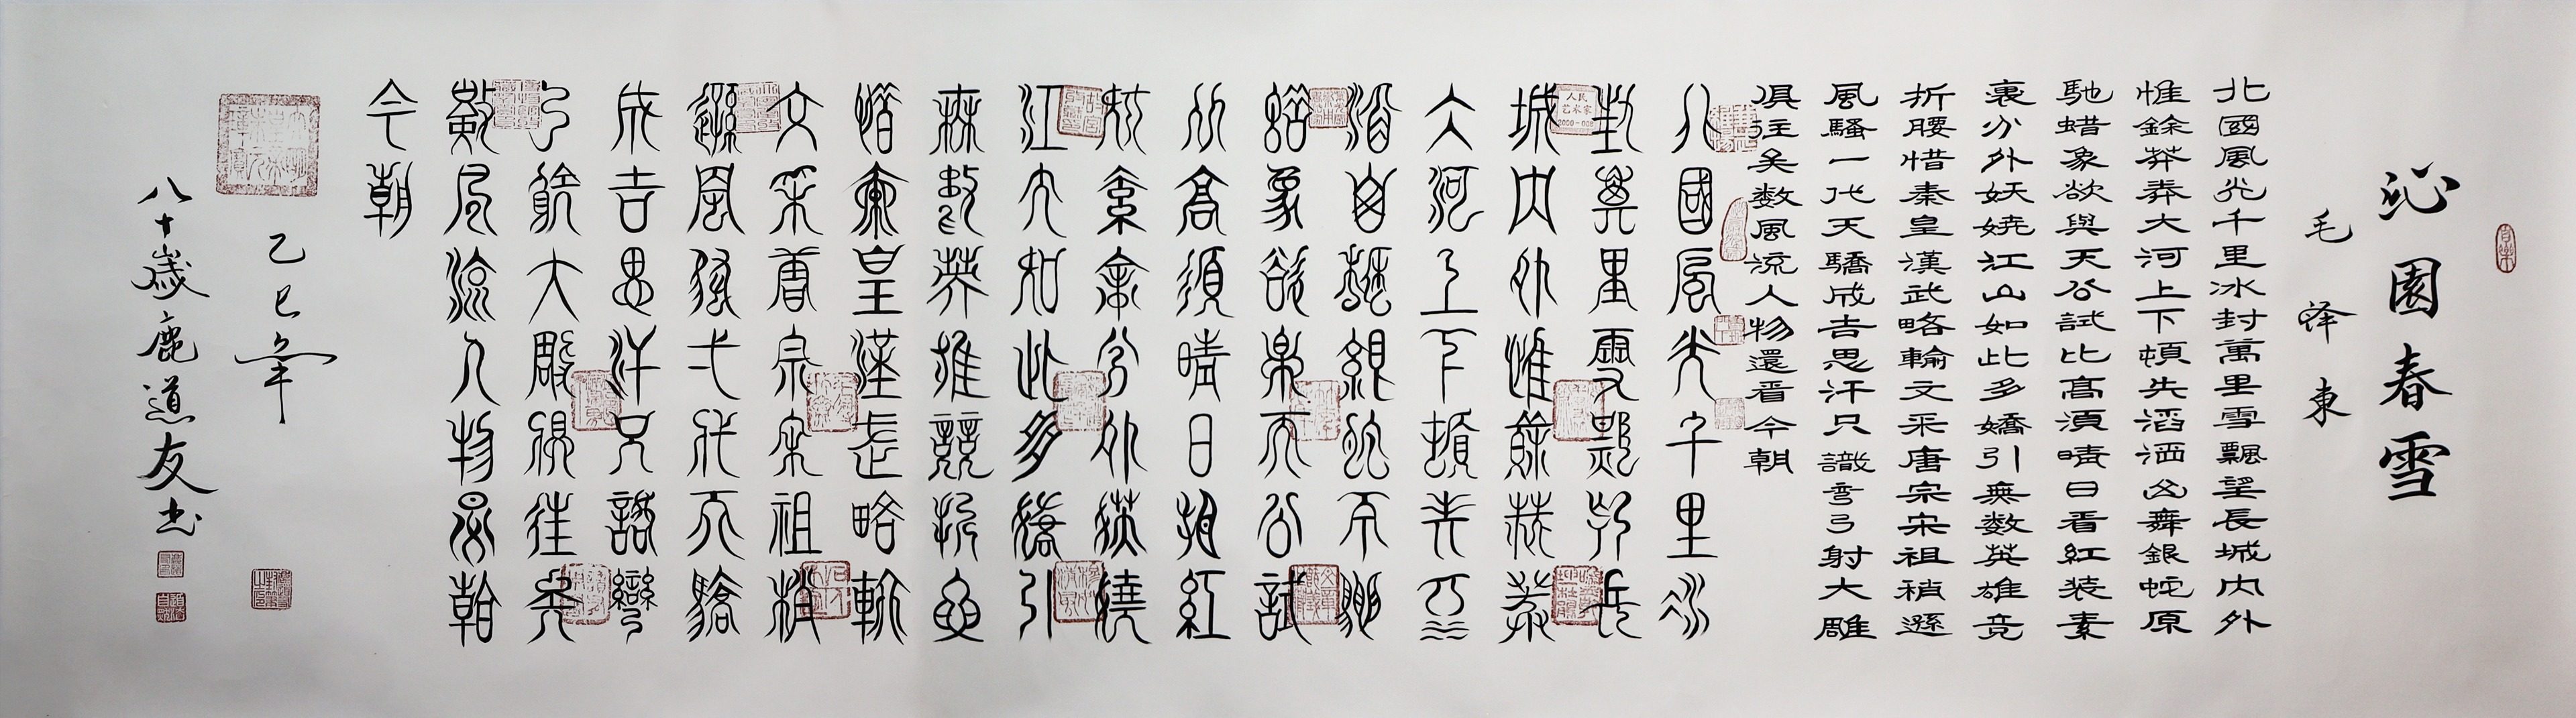 沁園春雪
毛泽東
北國風光千里冰封萬里雪飄望長城内外
惟餘莽莽大河上下頓失滔滔山舞銀蛇原
馳蜡象欲與天公試比高須晴日看紅装素
裹分外妖娆江山如此多嬌引無數英雄竞
折腰惜秦皇漢武略輸文采唐宗宋祖稍遜
風騷一代天驕成吉思汗只識弯弓射大雕
俱往矣数風流人物還看今朝
北國風光千里冰
封萬里雪飄望長
城内外惟餘莽莽
大河上下頓失滔
滔山舞銀蛇原馳
蜡象欲與天公試
比高須晴日看紅
装素裹分外妖娆
江山如此多嬌引
無數英雄競折腰
惜秦皇漢武略輸
文采唐宗宋祖稍
遜風騷一代天驕
成吉思汗只識彎
弓射大雕俱往矣
數風流人物還看
今朝
乙巳年
八十歲鹿道友书
人民
艺术家